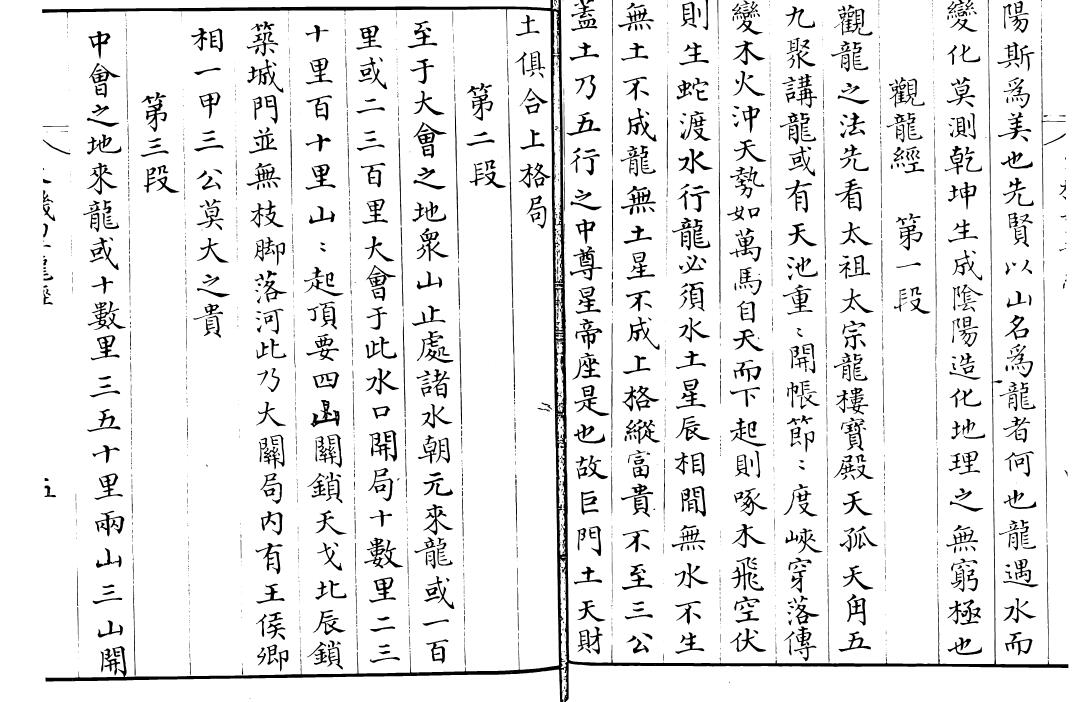 陽斯爲美也先賢以山名爲龍者何也龍遇水而
變化莫測乾坤生成陰陽造化地理之無窮極也
觀龍經　第一段
觀龍之法先看太祖太宗龍樓寶殿天孤天角五
九聚講龍或有天池重〻開帳節〻度峽穿落傳
變木火沖天勢如萬馬自天而下起則啄木飛空伏
則生蛇渡水行龍必須水土星辰相間無水不生
無土不成龍無土星不成上格縱富貴不至三公
蓋土乃五行之中尊星帝座是也故巨門土天財
土俱合上格局
第二段
至于大會之地衆山止處諸水朝元來龍或一百
里或二三百里大會于此水口開局十數里二三
十里百十里山〻起頂要四凶關鎖天戈北辰鎖
築城門並無枝脚落河此乃大關局内有王侯卿
相一甲三公莫大之貴
第三段
中會之地來龍或十數里三五十里兩山三山開
五